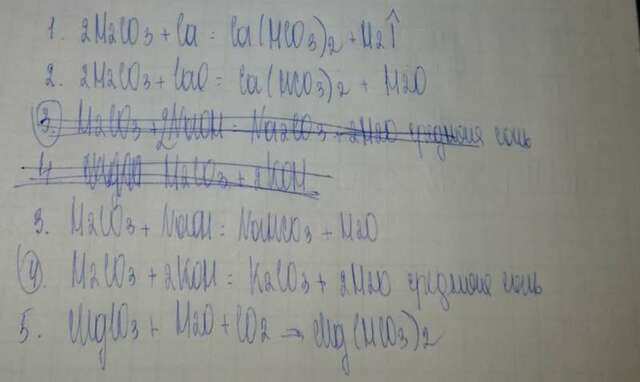 1. 2H2CO3 + Ca = Ca(HCO3)2 + H2↑
2. 2H2CO3 + CaO = Ca(HCO3)2 + H2O
3. H2CO3 + 2NaOH = Na2CO3 + 2H2O средняя соль
4. H2CO3 + 2KOH
3. H2CO3 + NaOH = NaHCO3 + H2O
4. H2CO3 + 2KOH = K2CO3 + 2H2O средняя соль
5. MgCO3 + H2O + CO2 → Mg(HCO3)2